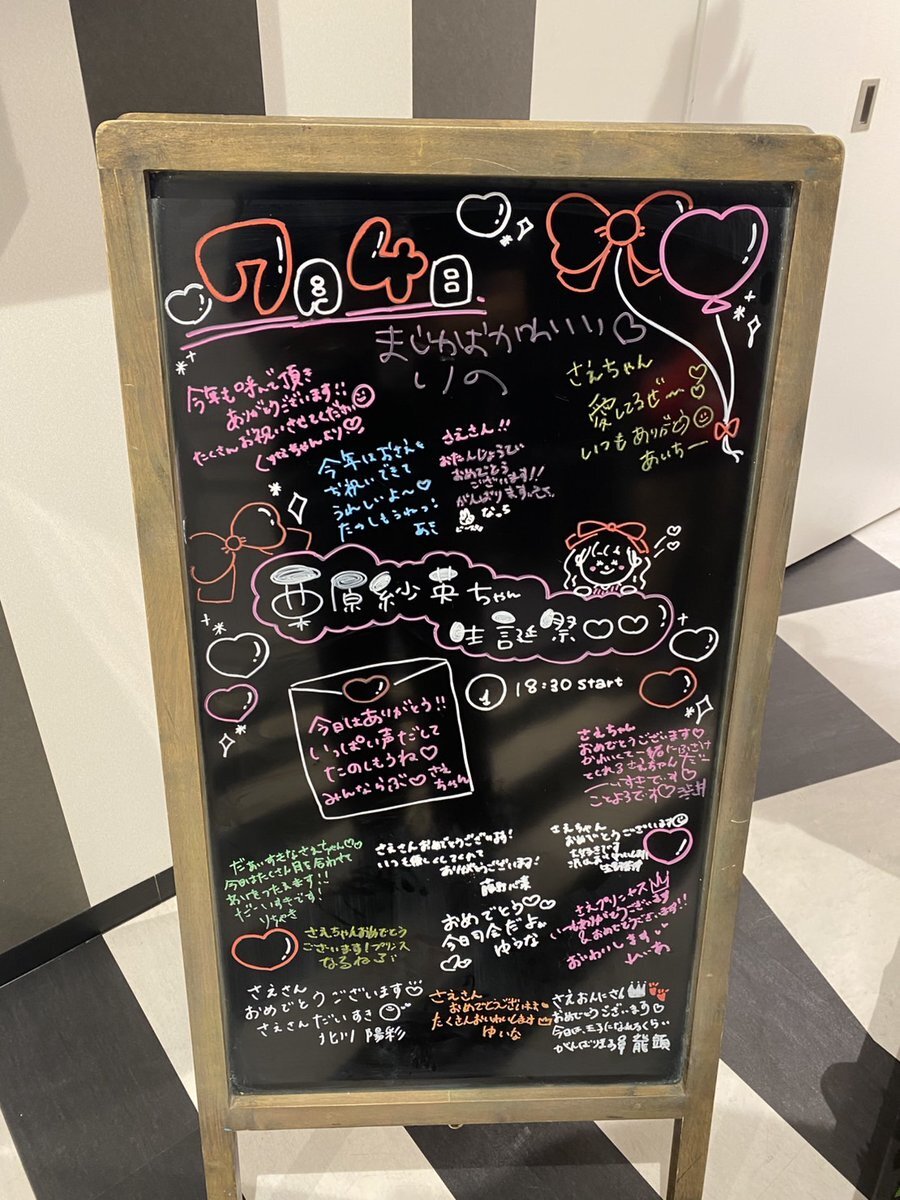 7月4日
まじかばかわいい♡
りの
今年も呼んで頂き
ありがとうございます!!
たくさんお祝いさせてください
ちゃんより♡
さえちゃん
愛してるぜ〜♡
いつもありがとう
あいちー
今年はおさえ
お祝いできて
うれしいよ〜♡
たのしもうねっ!
あき
さえさん!!
おたんじょうび
おめでとう
ございます!!
がんばります
なっち
栗原紗英ちゃん
生誕祭♡♡
18:30 start
今日はありがとう!!
いっぱい声だして
たのしもうね♡
みんならぶ♡さえちゃん
さえちゃん
おめでとうございます♡
かわいくて一緒にふざけ
てくれるさえちゃんだ
いすきです♡
ことよろです♡
だあいすきなさえちゃん♡♡
今日はたくさん目を合わせて
あいをつたえます!!
だいすきです♡
りちゃき
さえさんおめでとうございます!
いつも優しくしてくださり
ありがとうございます!
さえちゃん
おめでとうございます
大好きです
おめでとう♡♡
今日の会だよ
ゆうな
さえプリンセス
いつもありがとうございます
&おめでとうございます!!
おいわいします
さえちゃんおめでとう
ございます!プリンス
なるねぶ
さえさん
おめでとうございます♡
さえさんだいすき
北川 陽彩
さえさん
おめでとうございます
たくさんおいわいします
ゆいな
さえおんにさん
おめでとうございまり♡
今日は、王子になれるくらい
がんばりまる 龍頭